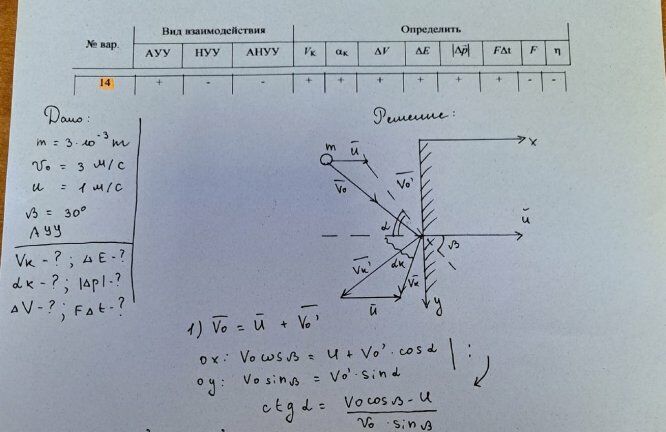 № вар. Вид взаимодействия Определить
АУУ НУУ АНУУ Vк αк ΔV ΔE |Δp̄| FΔt F η
14 + - - + + + + + + - -
Дано:
m = 3·10⁻³ т
V₀ = 3 м/с
u = 1 м/с
β = 30°
АУУ
Vк - ? ; ΔE - ?
αк - ? ; |Δp| - ?
ΔV - ? ; FΔt - ?
Решение:
x
m ū
V̄₀ V̄₀'
ū
α β
V̄к' αк V̄к
ū y
1) V̄₀ = ū + V̄₀'
ox: V₀ cosβ = u + V₀' · cosα | :
oy: V₀ sinβ = V₀' · sinα
ctg α = V₀ cosβ - u / V₀ · sinβ